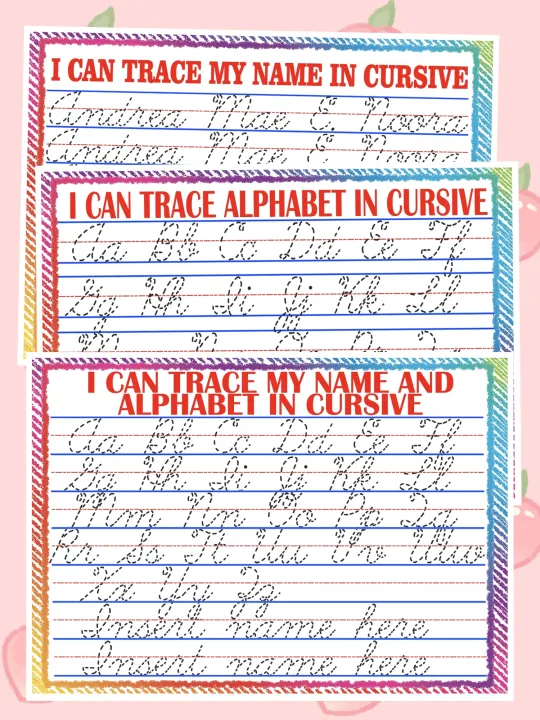 I CAN TRACE MY NAME IN CURSIVE
Andrea Mae E. Noora
Andrea Mae E. Noora
I CAN TRACE ALPHABET IN CURSIVE
Aa Bb Cc Dd Ee Ff
Gg Hh Ii Jj Kk Ll
I CAN TRACE MY NAME AND
ALPHABET IN CURSIVE
Aa Bb Cc Dd Ee Ff
Gg Hh Ii Jj Kk Ll
Mm Nn Oo Pp Qq
Rr Ss Tt Uu Vv Ww
Xx Yy Zz
Insert name here
Insert name here